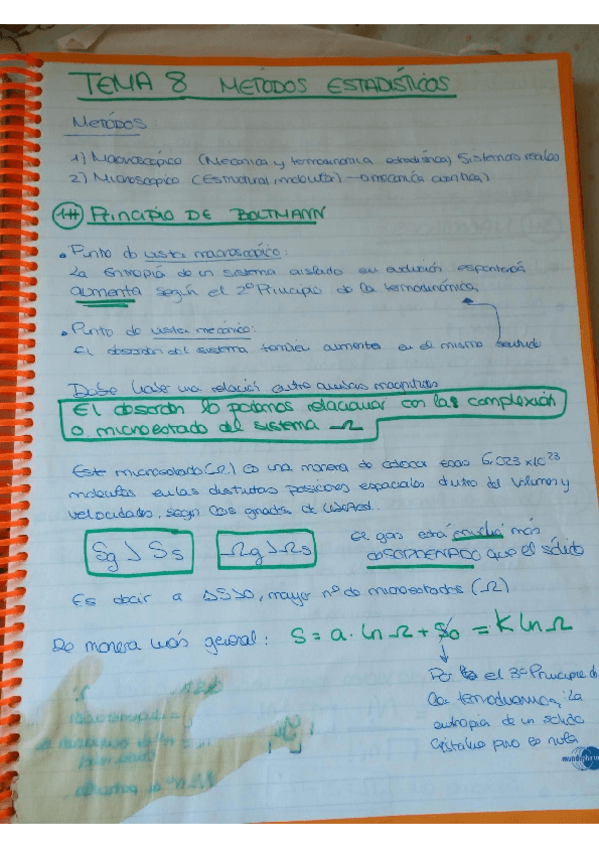 TEMA 8 METODOS ESTADÍSTICOS
METODOS:
1) Macroscópico (Mecanica y termodinamica estadistica) Sistemas reales
2) Microscópico (Estructural, molecular) → mecanica cuantica)
1# PRINCIPIO DE BOLTMANN
• Punto de vista macroscópico:
La Entropía de un sistema aislado en evolución espontanea
aumenta según el 2º Principio de la termodinámica.
• Punto de vista mecánico:
El desorden del sistema tambien aumenta en el mismo sentido
Debe haber una relación entre ambas magnitudes
El desorden lo podemos relacionar con las complexión
o microestado del sistema Ω
Este microestado (Ω) es una manera de colocar esas 6,023x10²³
moleculas en las distintas posiciones espaciales dentro del volumen y
velocidades, segun los grados de libertad.
Sg > Ss Ωg > Ωs El gas está mucho más
DESORDENADO que el sólido
Es decir a ΔS>0, mayor nº de microestados (Ω)
De manera más general: S = a · ln Ω + S₀ = K ln Ω
Por el 3º Principio de
la termodinamica: La
entropia de un sólido
cristalino puro es nula